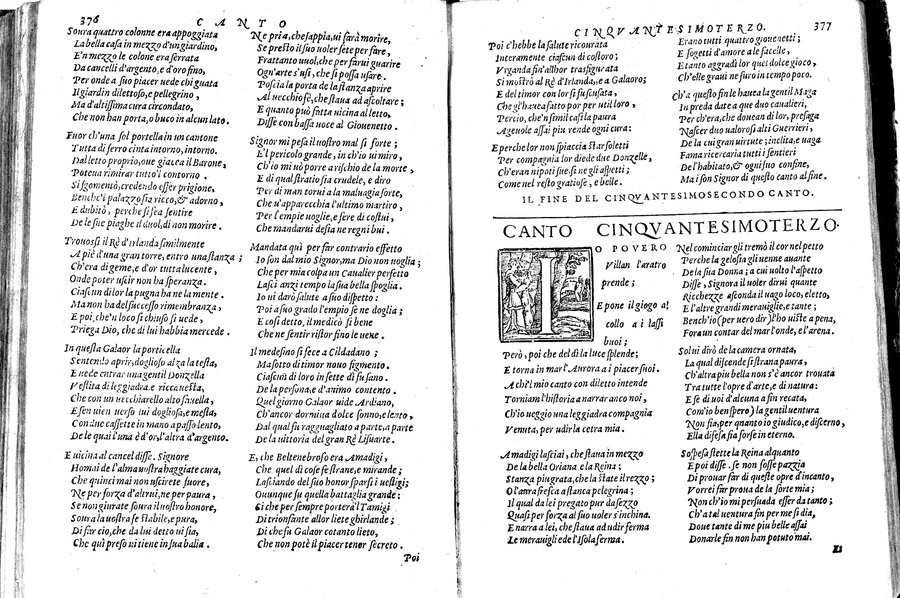 376 CANTO
Soura quattro colonne era appoggiata
La bella casa in mezzo d'un giardino,
E'n mezzo le colone era serrata
Da cancelli d'argento, e d'oro fino,
Per onde a suo piacer uede chi guata
Il giardin dilettoso, e pellegrino,
Ma d'altissima cura circondato,
Che non han porta, o buco in alcun lato.
Fuor ch'una sol portella in un cantone
Tutta di ferro cinta intorno, intorno.
Dal letto proprio, oue giacea il Barone,
Poteua rimirar tutto'l contorno.
Sisgomentò, credendo esser prigione,
Benche'l palazzo sia ricco, & adorno,
E dubitò, perche si sea sentire
De le sue piaghe il duol, di non morire.
Trouossi il Rè d'Irlanda similmente
A piè d'una gran torre, entro una stanza;
Ch'era di geme, e d'or tutta lucente,
Onde poter uscir non ha speranza.
Ciascun di lor la pugna ha ne la mente.
Ma non ha del successo rimembranza,
E poi, che'n loco sì chiuso si uede,
Priega Dio, che di lui habbia mercede.
In questa Galaor la porticella
Sentendo aprir, doglioso alza la testa,
E uede entrar una gentil Donzella
Vestita di leggiadra, e ricca uesta,
Che con un uecchiarello alto fauella,
E sen uien uerso lui dogliosa, e mesta,
Con due cassette in mano a passo lento,
De le qual l'una è d'or, l'altra d'argento.
E uicina al cancel disse. Signore
Homai de l'alma uostra haggiate cura,
Che quinci mai non uscirete fuore,
Ne per forza d'altrui, ne per paura,
Se non giurate soura il uostro honore,
Soura la uostra fe stabile, e pura,
Di far ciò, che da lui detto ui sia,
Che qui preso ui tiene in sua balia.
Ne pria, che sappia, ui farà morire,
Se presto il suo uoler fete per fare,
Frattanto uuol, che per farui guarire
Ogn'arte s'usi, che si possa usare.
Poscia la porta de la stanza aprire
Al uecchio fè, che staua ad ascoltare;
E quanto può fatta uicina al letto,
Disse con bassa uoce al Giouenetto.
Signor mi pesa il uostro mal sì forte;
E'l pericolo grande, in ch'io ui miro,
Ch'io mi uò porre a rischio de la morte,
E di qual stratio sia crudele, e diro
Per di man torui a la maluagia sorte,
Che u'apparecchia l'ultimo martiro,
Per l'empie uoglie, e fere di costui,
Che mandarui desia ne regni bui.
Mandata quì per far contrario effetto
Io son dal mio Signor, ma Dio non uoglia;
Che per mia colpa un Caualier perfetto
Lasci anzi tempo la sua bella spoglia.
Io ui darò salute a suo dispetto:
Poi a suo grado l'empio se ne doglia;
E così detto, il medicò sì bene
Che ne sentir ristor fino le uene.
Il medesimo si fece a Cildadano;
Ma sotto di timor nouo figmento.
Ciascun di loro in sette dì fu sano.
De la persona, e d'animo contento.
Quel giorno Galaor uide Ardiano,
Ch'ancor dormiua dolce sonno, e lento,
Dal qual fu ragguagliato a parte, a parte
De la uittoria del gran Rè Lisuarte.
E, che Beltenebroso era Amadigi,
Che quel dì cose fe strane, e mirande;
Lasciando del suo honor sparsi i uestigi;
Ouunque fu quella battaglia grande:
Si che per sempre porterà l'Amigi
Di trionfante allor liete ghirlande;
Di che fu Galaor cotanto lieto,
Che non potè il piacer tener secreto.
Poi
CINQVANTESIMOTERZO. 377
Poi c'hebbe la salute ricourata
Interamente ciascun di costoro;
Vrganda fin'allhor trasfigurata
Si mostrò al Rè d'Irlanda, e a Galaoro;
E del timor con lor si fu scusata,
Che gl'haueа fatto por per util loro,
Percio, che'n simil casi la paura
Ageuole assai piu rende ogni cura:
E perche lor non spiaccia star soletti
Per compagnia lor diede due Donzelle,
Ch'eran nipoti sue sì ne gli aspetti;
Come nel resto gratiose, e belle.
Erano tutti quattro giouenetti;
E soggetti d'amore a le facelle,
E tanto aggradì lor quel dolce gioco,
Ch'elle graui ne furo in tempo poco.
Ch'a questo fin le hauea la gentil Maga
In preda date a que duo caualieri,
Per ch'era, che douean di lor, presaga
Nascer duo ualorosi alti Guerrieri,
De la cui gran uirtute; inclita, e uaga
Fama ricercaria tutti i sentieri
De l'habitato, & ogni suo confine,
Ma i son Signor di questo canto al fine.
IL FINE DEL CINQVANTESIMOSECONDO CANTO.
CANTO CINQVANTESIMOTERZO.
O POVERO
Villan l'aratro
prende;
E pone il giogo al
collo a i lassi
buoi;
Però, poi che del dì la luce splende;
E torna in mar l'Aurora a i piacer suoi.
A ch'l mio canto con diletto intende
Torniam l'historia a narrar anco noi,
Ch'io ueggio una leggiadra compagnia
Venuta, per udir la cetra mia.
Amadigi lasciai, che staua in mezzo
De la bella Oriana, e la Reina;
Stanza piugrata, che la state il rezzo;
O l'aura fresca a stanca pelegrina;
Il qual da lei pregato pur da sezzo
Quasi per forza al suo uoler s'inchina.
E narra a lei, che staua ad udir ferma
Le merauiglie de l'Isola ferma.
Nel cominciar gli tremò il cor nel petto
Perche la gelosia gli uenne auante
De la sua Donna; a cui uolto l'aspetto
Disse, Signora il uoler dirui quante
Ricchezze asconda il uago loco, eletto,
E l'altre grandi merauiglie, e tante;
Bench'io (per uero dir) l'ho uiste a pena,
Fora un contar del mar l'onde, e l'arena.
Sol ui dirò de la camera ornata,
La qual discende si strana paura,
Ch'altra piu bella non s'è ancor trouata
Tra tutte l'opre d'arte, e di natura:
E se di uoi d'alcuna a fin recata,
Com'io ben spero) la gentil uentura
Non fia, per quanto io giudico, e discerno,
Ella difesa fia forse in eterno.
Sospesa stette la Reina alquanto
E poi disse. se non fosse pazzia
Di prouar far di queste opre d'incanto,
Vorrei far proua de la sorte mia;
Non ch'io mi persuada esser da tanto;
Ch'a tal uentura fin per me si dia,
Doue tante di me piu belle assai
Donarle fin non han potuto mai.
El